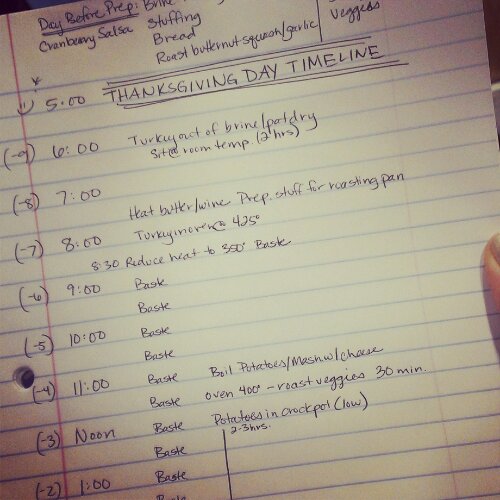 Day Before Prep: Brine
Cranberry Salsa Stuffing veggies
Bread
Roast butternut squash/garlic
5:00 THANKSGIVING DAY TIMELINE
(-9) 6:00 Turkey out of brine/pat dry
Sit @ room temp. (2 hrs)
(-8) 7:00
Heat butter/wine Prep. stuff for roasting pan
(-7) 8:00 Turkey in oven @ 425°
8:30 Reduce heat to 350° Baste
(-6) 9:00 Baste
Baste
(-5) 10:00 Baste
Baste
(-4) 11:00 Baste Boil Potatoes/Mash w/cheese
Baste oven 400° - roast veggies 30 min.
(-3) Noon Baste Potatoes in crockpot (low)
Baste 2-3 hrs.
(-2) 1:00 Baste
Baste